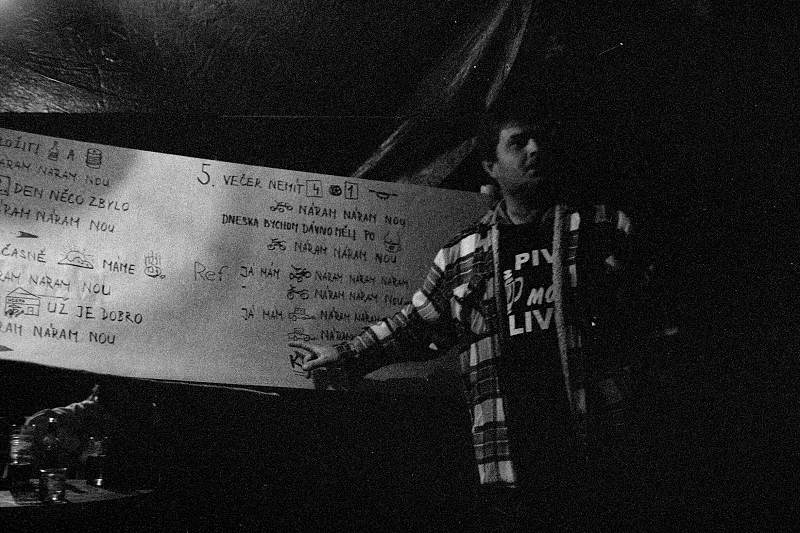 A
NÁRAM NOU
DEN NĚCO ZBYLO
NÁRAM NOU
MÁME
NÁRAM NOU
UŽ JE DOBRO
NÁRAM NOU
5. VEČER NEMÍT 4 1
NÁRAM NÁRAM NOU
DNESKA BYCHOM DÁVNO MĚLI PO
NÁRAM NÁRAM NOU
Ref JÁ MÁM NÁRAM NÁRAM NÁRAM
" NÁRAM NÁRAM NOU
JÁ MÁM NÁRAM NÁRAM
PIV
MO
LIV